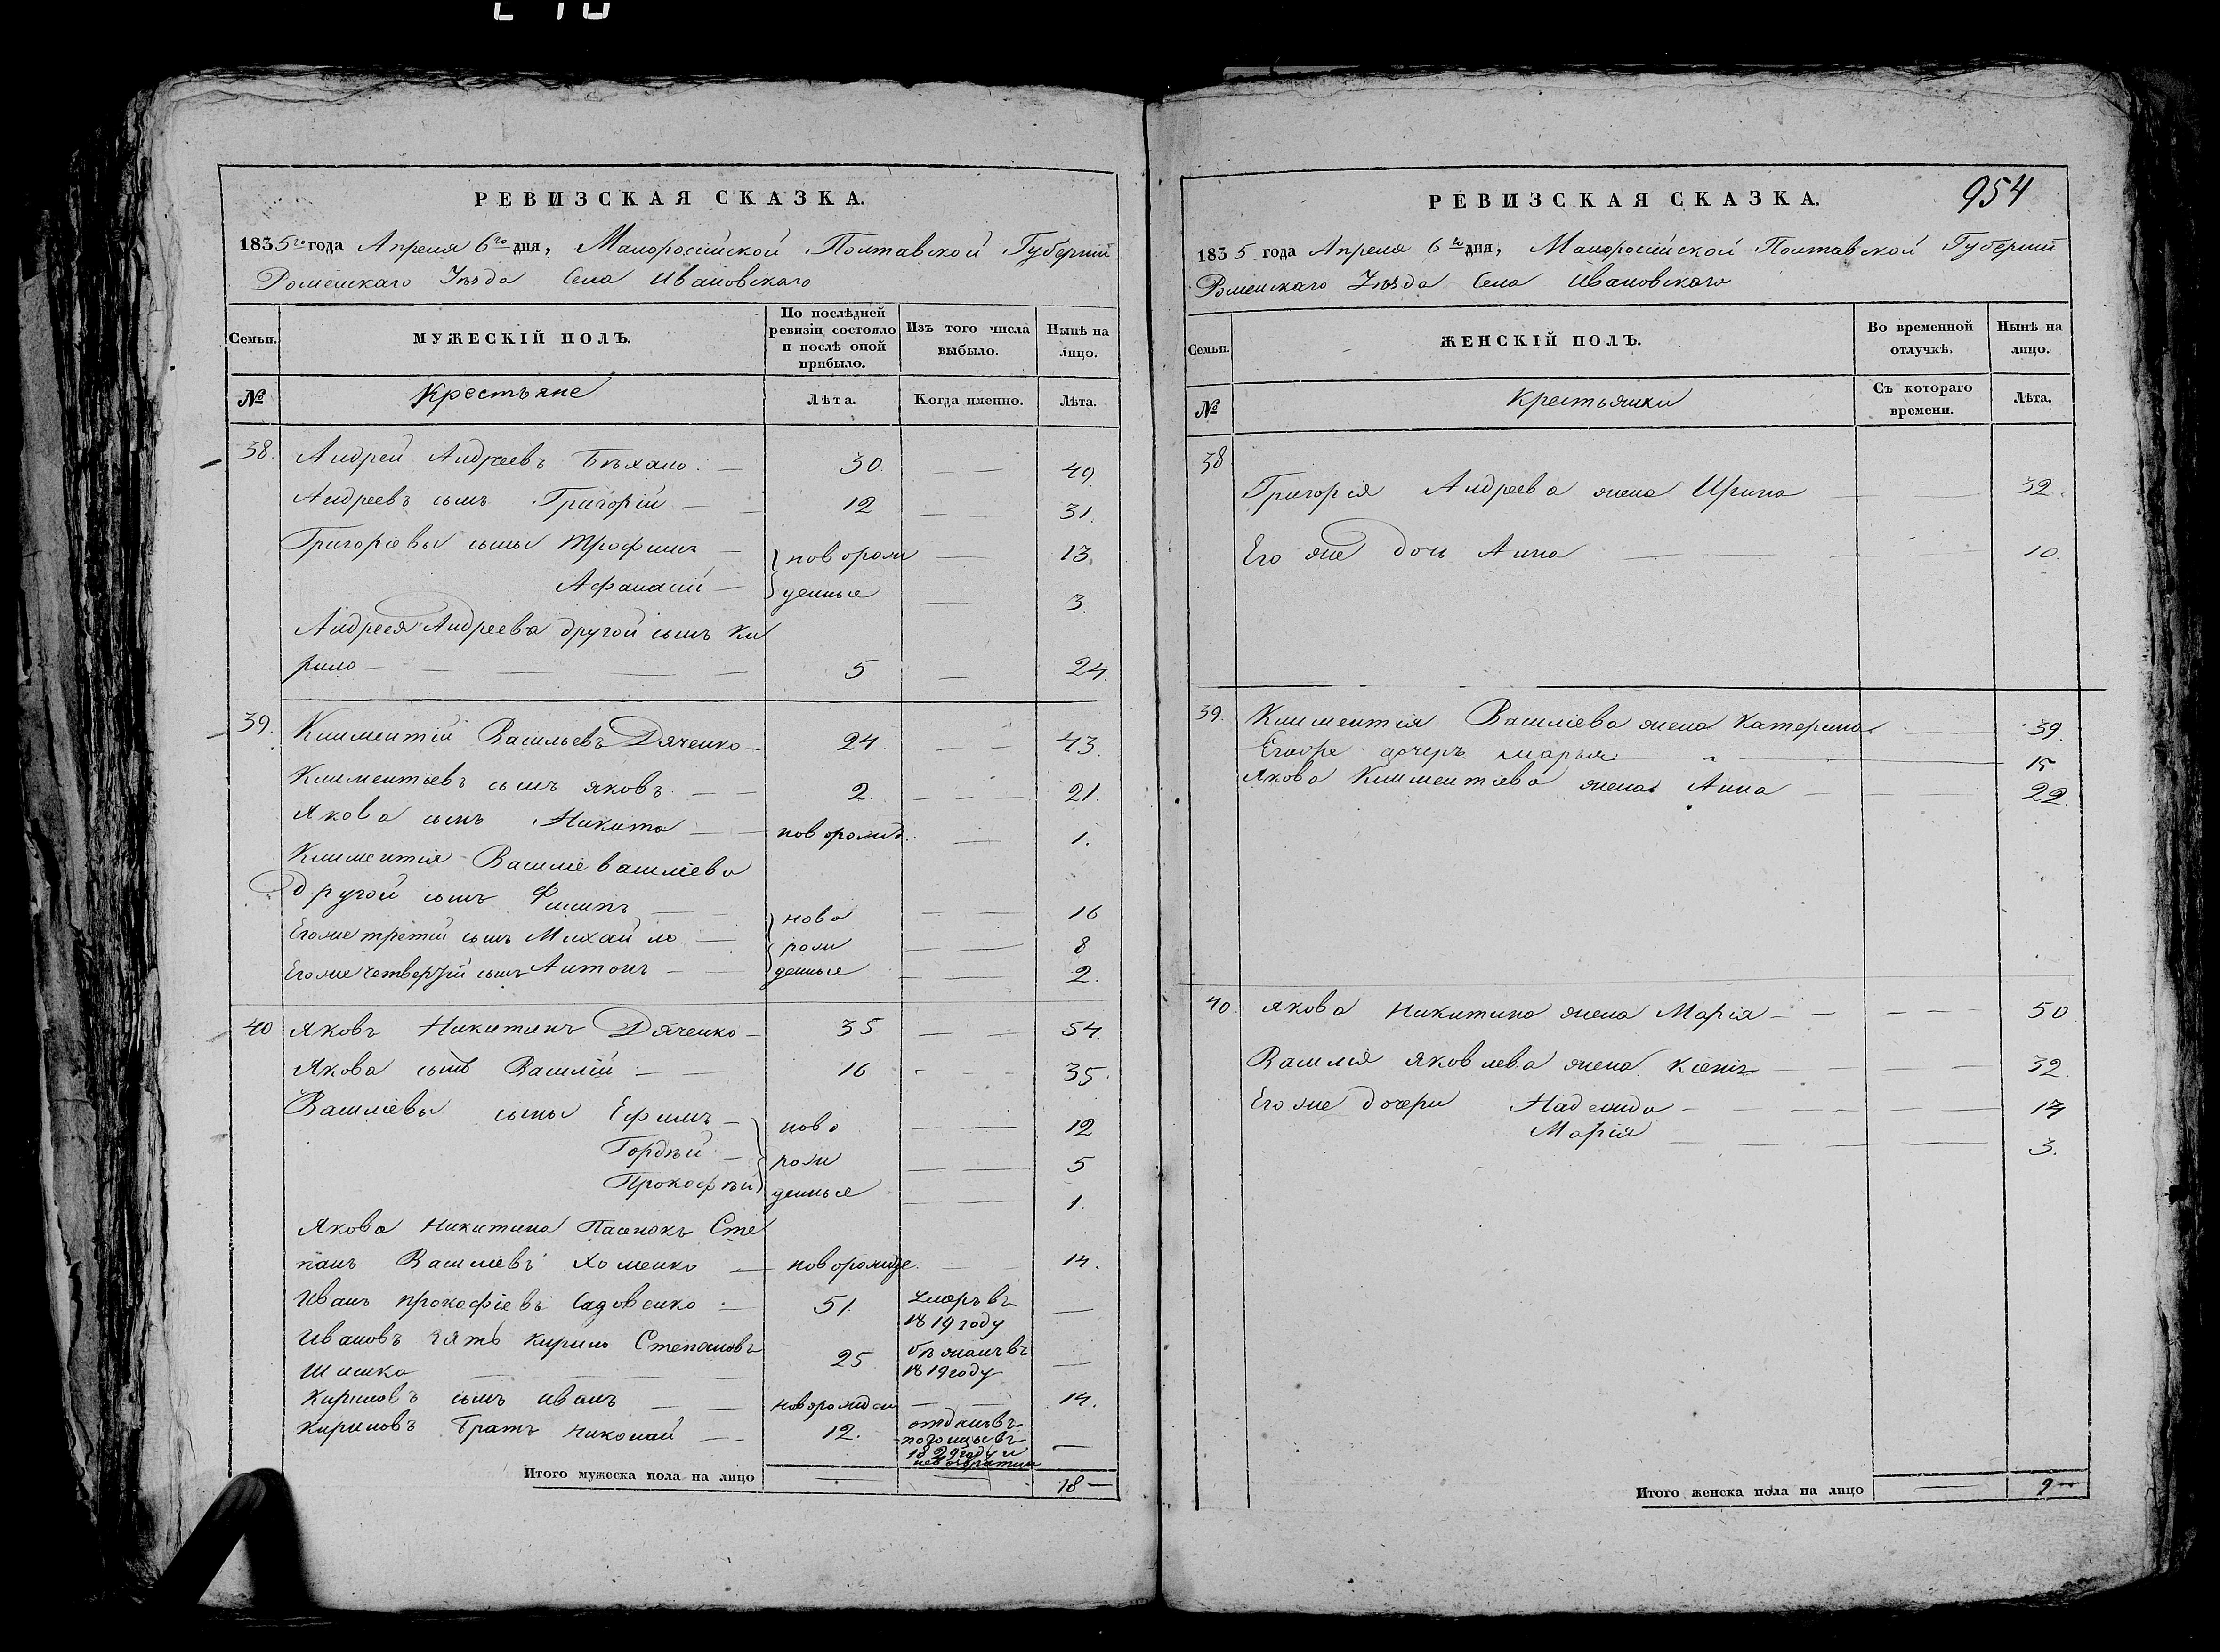 РЕВИЗСКАЯ СКАЗКА.
1835го года Апреля 6го дня, Малоросійской Полтавской Губерніи
Роменскаго Уѣзда Села Ивановского
Семьи. МУЖЕСКІЙ ПОЛЪ. По послѣдней ревизіи состояло и послѣ оной прибыло. Изъ того числа выбыло. Нынѣ на лицо.
№ Крестьяне Лѣта. Когда именно. Лѣта.
38. Андрей Андреевъ Бѣхало 30. 49
Андреевъ сынъ Григорій 12 31.
Григоріевы сыны Трофимъ новорож 13.
Афанасій денные 3.
Андрея Андреева другой сынъ Ки
рило 5 24.
39. Климентій Васильевъ Дяченко 24. 43.
Климентіевъ сынъ Яковъ 2. 21.
Якова сынъ Никита новорожд. 1.
Климентія Василіева
другой сынъ Филипъ ново 16
Егоже третій сынъ Михайло рож 8
Егоже четвертій сынъ Антонъ денные 2.
40 Яковъ Никитинъ Дяченко 35 54.
Якова сынъ Василій 16 35.
Василіевы сыны Ефимъ ново 12
Гордѣй рож 5
Прокофѣй денные 1.
Якова Никитина Пасинокъ Сте
панъ Василіевъ Хоменко новорожде 14.
Иванъ Прокофіевъ Садовенко 51. умеръ въ 1819 году
Ивановъ зять Кирило Степановъ
Шишка 25 бѣжалъ въ 1819 году
Кириловъ сынъ Иванъ новорожден 14.
Кириловъ братъ Николай 12. отданъ въ
погонцы въ
1829 году и
невозвратил
Итого мужеска пола на лицо 18
РЕВИЗСКАЯ СКАЗКА. 954
1835 года Апреля 6го дня, Малоросійской Полтавской Губерніи
Роменскаго Уѣзда Села Ивановского
Семьи. ЖЕНСКІЙ ПОЛЪ. Во временной отлучкѣ. Нынѣ на лицо.
№ Крестьянки Съ котораго времени. Лѣта.
38
Григорія Андреева жена Ирина 32.
Его же дочь Анна 10.
39. Климентія Василіева жена Катерина 39.
Егоже дочеръ Марья 15
Якова Климентіева жена Анна 22.
40. Якова Никитина жена Марія 50
Василія Яковлева жена 32.
Его же дочери Надежда 14
Марія 3.
Итого женска пола на лицо 9